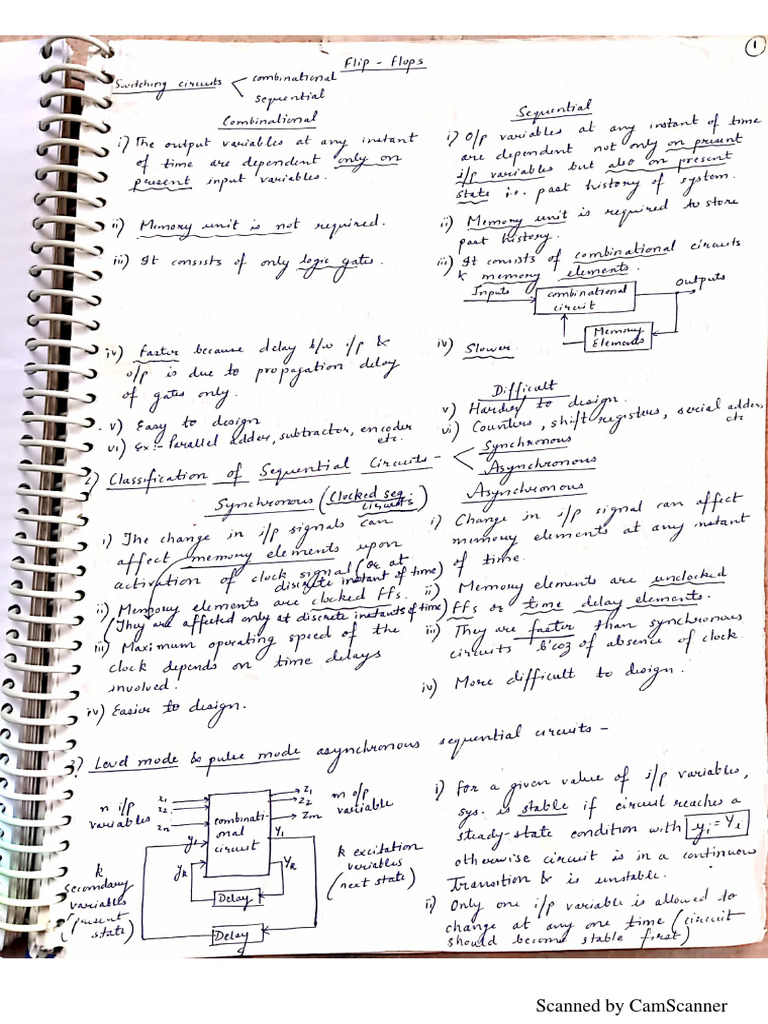 1
Flip - Flops
Switching circuits
combinational
sequential
Combinational
i) The output variables at any instant
of time are dependent only on
present input variables.
ii) Memory unit is not required.
iii) It consists of only logic gates.
iv) Faster because delay b/w i/p &
o/p is due to propagation delay
of gates only.
v) Easy to design
vi) Ex:- Parallel adder, subtractor, encoder
etc.
Sequential
i) O/p variables at any instant of time
are dependent not only on present
i/p variables but also on present
state i.e. past history of system.
ii) Memory unit is required to store
past history.
iii) It consists of combinational circuits
& memory elements.
Inputs
combinational
circuit
Outputs
Memory
Elements
iv) Slower
Difficult
v) Harder to design.
vi) Counters, shift registers, serial adder,
etc
2) Classification of Sequential Circuits -
Synchronous
Asynchronous
Synchronous (Clocked seq.
circuits)
i) The change in i/p signals can
affect memory elements upon
activation of clock signal (or at
discrete instant of time)
ii) Memory elements are clocked FFs.
(They are affected only at discrete instants of time)
iii) Maximum operating speed of the
clock depends on time delays
involved.
iv) Easier to design.
Asynchronous
i) Change in i/p signal can affect
memory elements at any instant
of time.
ii) Memory elements are unclocked
FFs or time delay elements.
iii) They are faster than synchronous
circuits b'coz of absence of clock.
iv) More difficult to design.
3) Level mode & pulse mode asynchronous sequential circuits -
n i/p
variables
x1
x2
xn
combinati-
onal
circuit
z1
z2
zm
m o/p
variable
y1
yk
Y1
Yk
k excitation
variables
(next state)
k
secondary
variables
(present
state)
Delay
Delay
i) For a given value of i/p variables,
sys. is stable if circuit reaches a
steady-state condition with yi = Yi
otherwise circuit is in a continuous
transition & is unstable.
ii) Only one i/p variable is allowed to
change at any one time (circuit
should become stable first)
Scanned by CamScanner